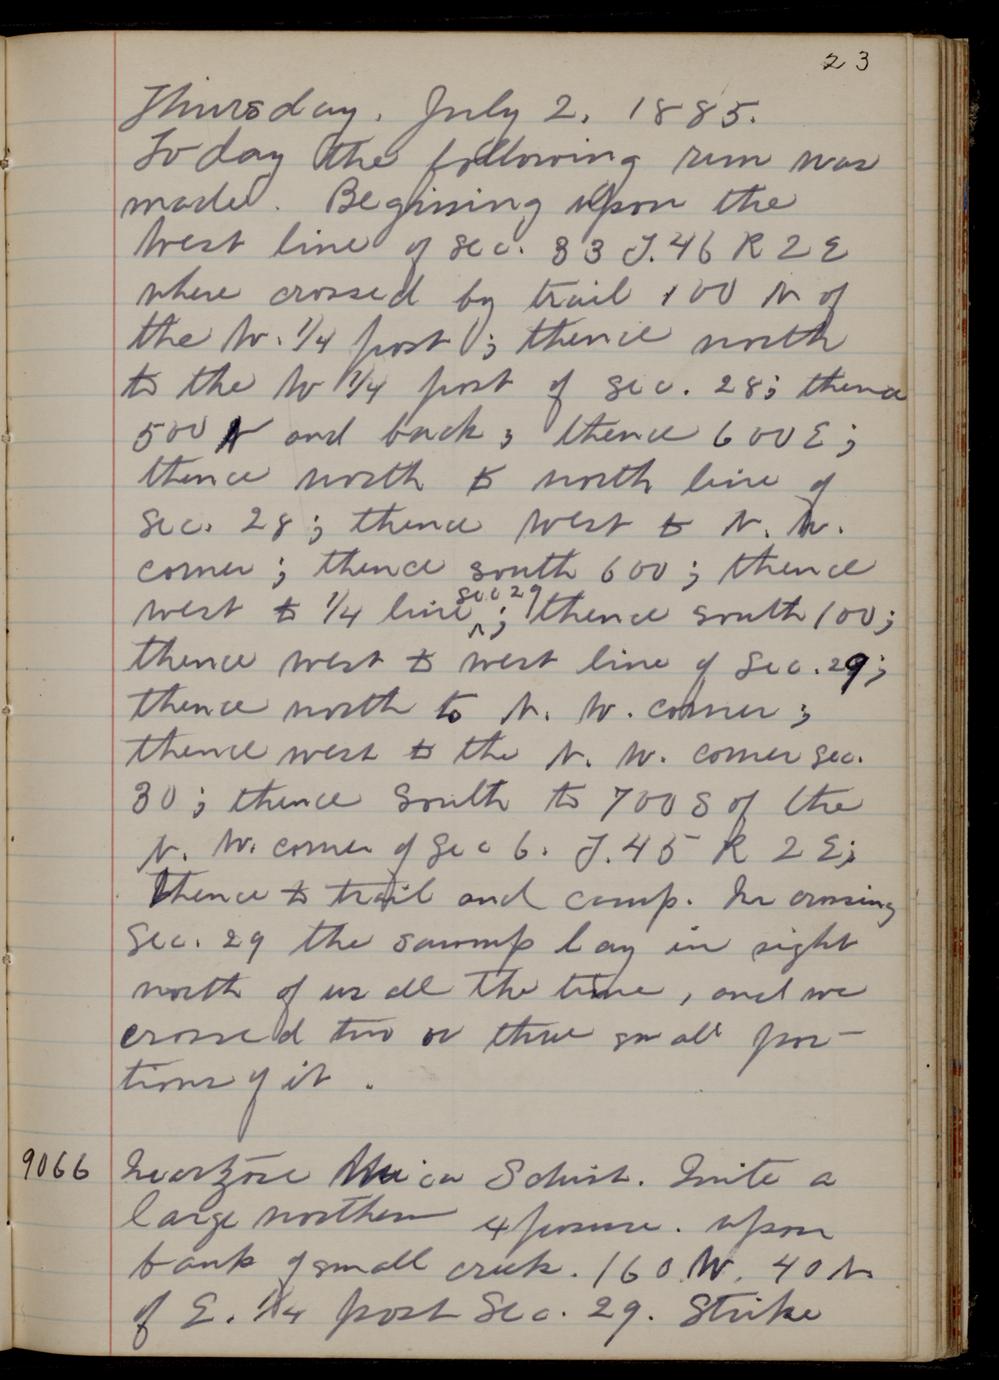 23
Thursday. July 2, 1885.
Today the following run was
made. Begining upon the
West line of Sec. 33 T. 46 R 2 E
where crossed by trail 100 N of
the W. 1/4 post; thence north
to the W 1/4 post of Sec. 28; thence
500 N and back; thence 600 E;
thence north to north line of
Sec. 28; thence West to N. W.
corner; thence south 600; thence
west to 1/4 line sec 29; thence south 100;
thence west to west line of Sec. 29;
thence north to N. W. corner;
thence west to the N. W. corner Sec.
30; thence South to 700 S of the
N. W. corner of Sec 6. T. 45 R 2 E;
Thence to trail and camp. In crossing
Sec. 29 the swamp lay in sight
north of us all the time, and we
crossed two or three small por-
tions of it.
9066 Quartzose Mica Schist. Quite a
large northern exposure. upon
bank of small creek. 160 W. 40 N
of E. 1/4 post Sec. 29. Strike